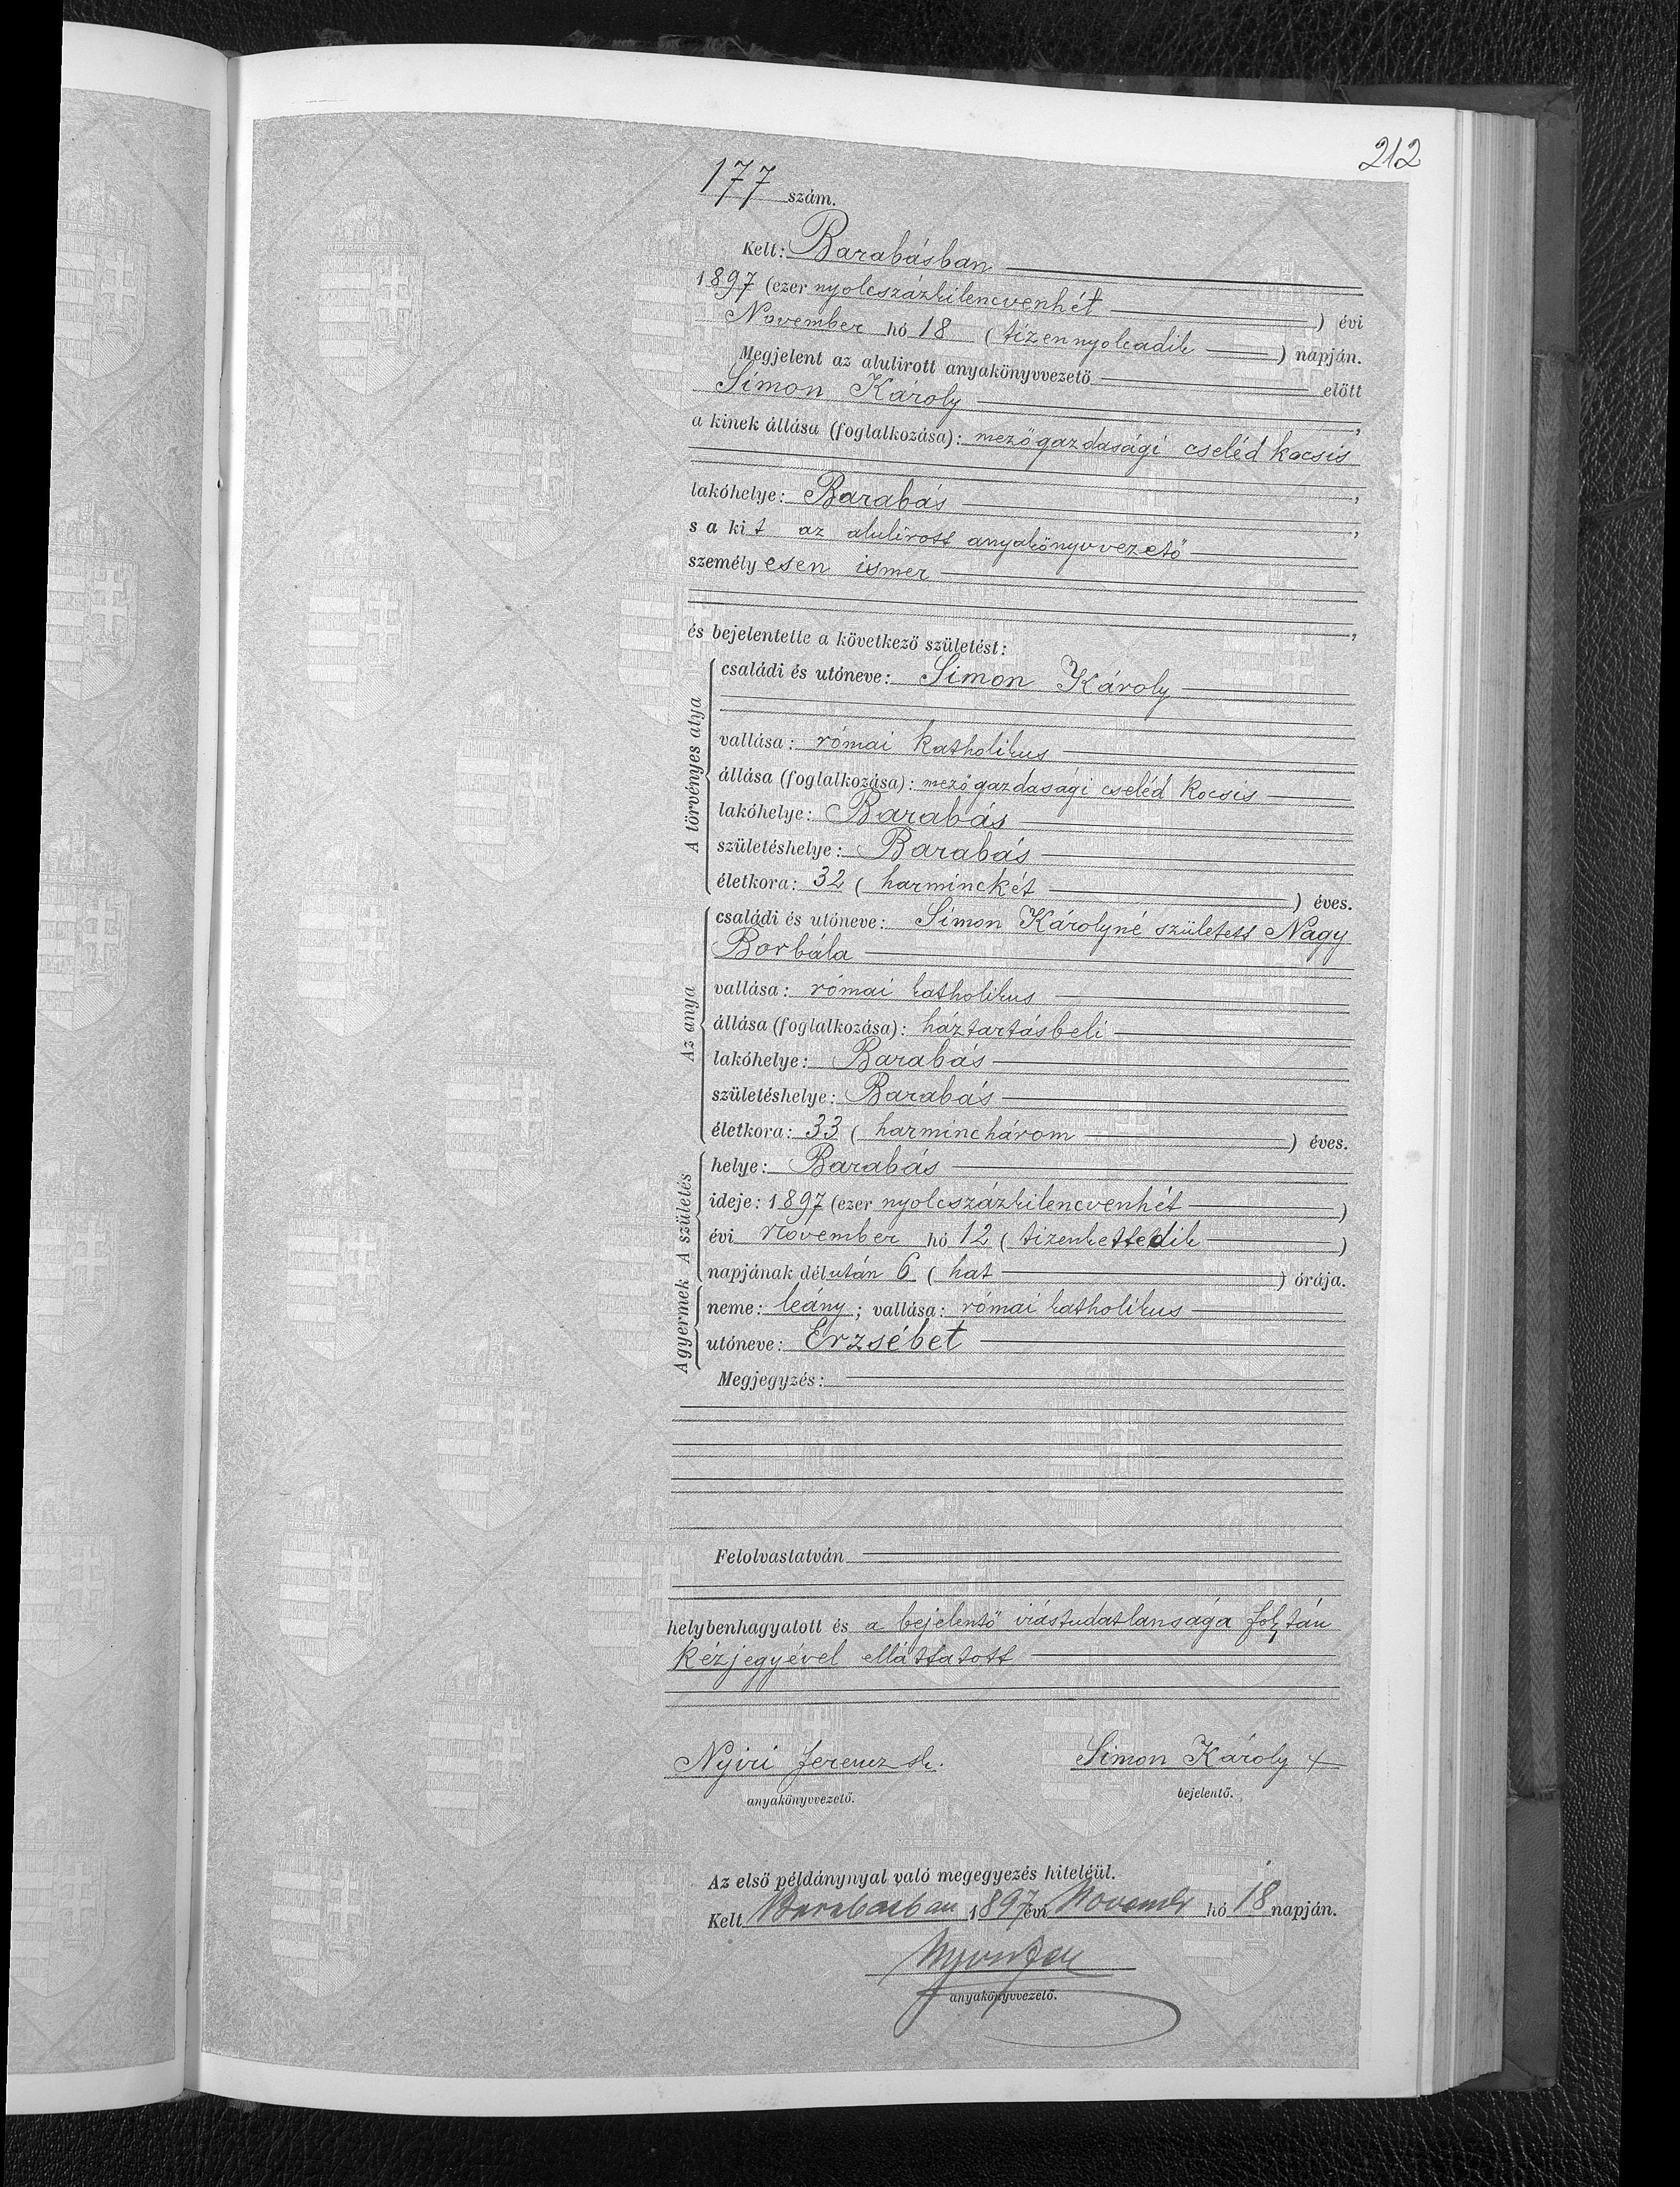 212
177 szám.
Kelt: Barabásban
1897 (ezer nyolcszázkilencvenhét ) évi
November hó 18 ( tizennyolcadik ) napján.
Megjelent az alulirott anyakönyvvezető előtt
Simon Károly ,
a kinek állása (foglalkozása): mezőgazdasági cseléd kocsis
,
lakóhelye: Barabás ,
s a kit az alulirott anyakönyvvezető
személyesen ismer
,
és bejelentette a következő születést:
A törvényes atya
családi és utóneve: Simon Károly
vallása: római katholikus
állása (foglalkozása): mezőgazdasági cseléd kocsis
lakóhelye: Barabás
születéshelye: Barabás
életkora: 32 ( harminckét ) éves.
Az anya
családi és utóneve: Simon Károlyné született Nagy
Borbála
vallása: római katholikus
állása (foglalkozása): háztartásbeli
lakóhelye: Barabás
születéshelye: Barabás
életkora: 33 ( harminchárom ) éves.
A születés
helye: Barabás
ideje: 1897 (ezer nyolcszázkilencvenhét )
évi November hó 12 ( tizenkettedik )
napjának délután 6 ( hat ) órája.
A gyermek
neme: leány; vallása: római katholikus
utóneve: Erzsébet
Megjegyzés:
Felolvastatván
helybenhagyatott és a bejelentő irástudatlansága folytán
kézjegyével elláttatott
Nyiri Ferencz sk. Simon Károly +
anyakönyvvezető. bejelentő.
Az első példánynyal való megegyezés hiteléül.
Kelt Barabásban 1897 évi November hó 18 napján.
anyakönyvvezető.